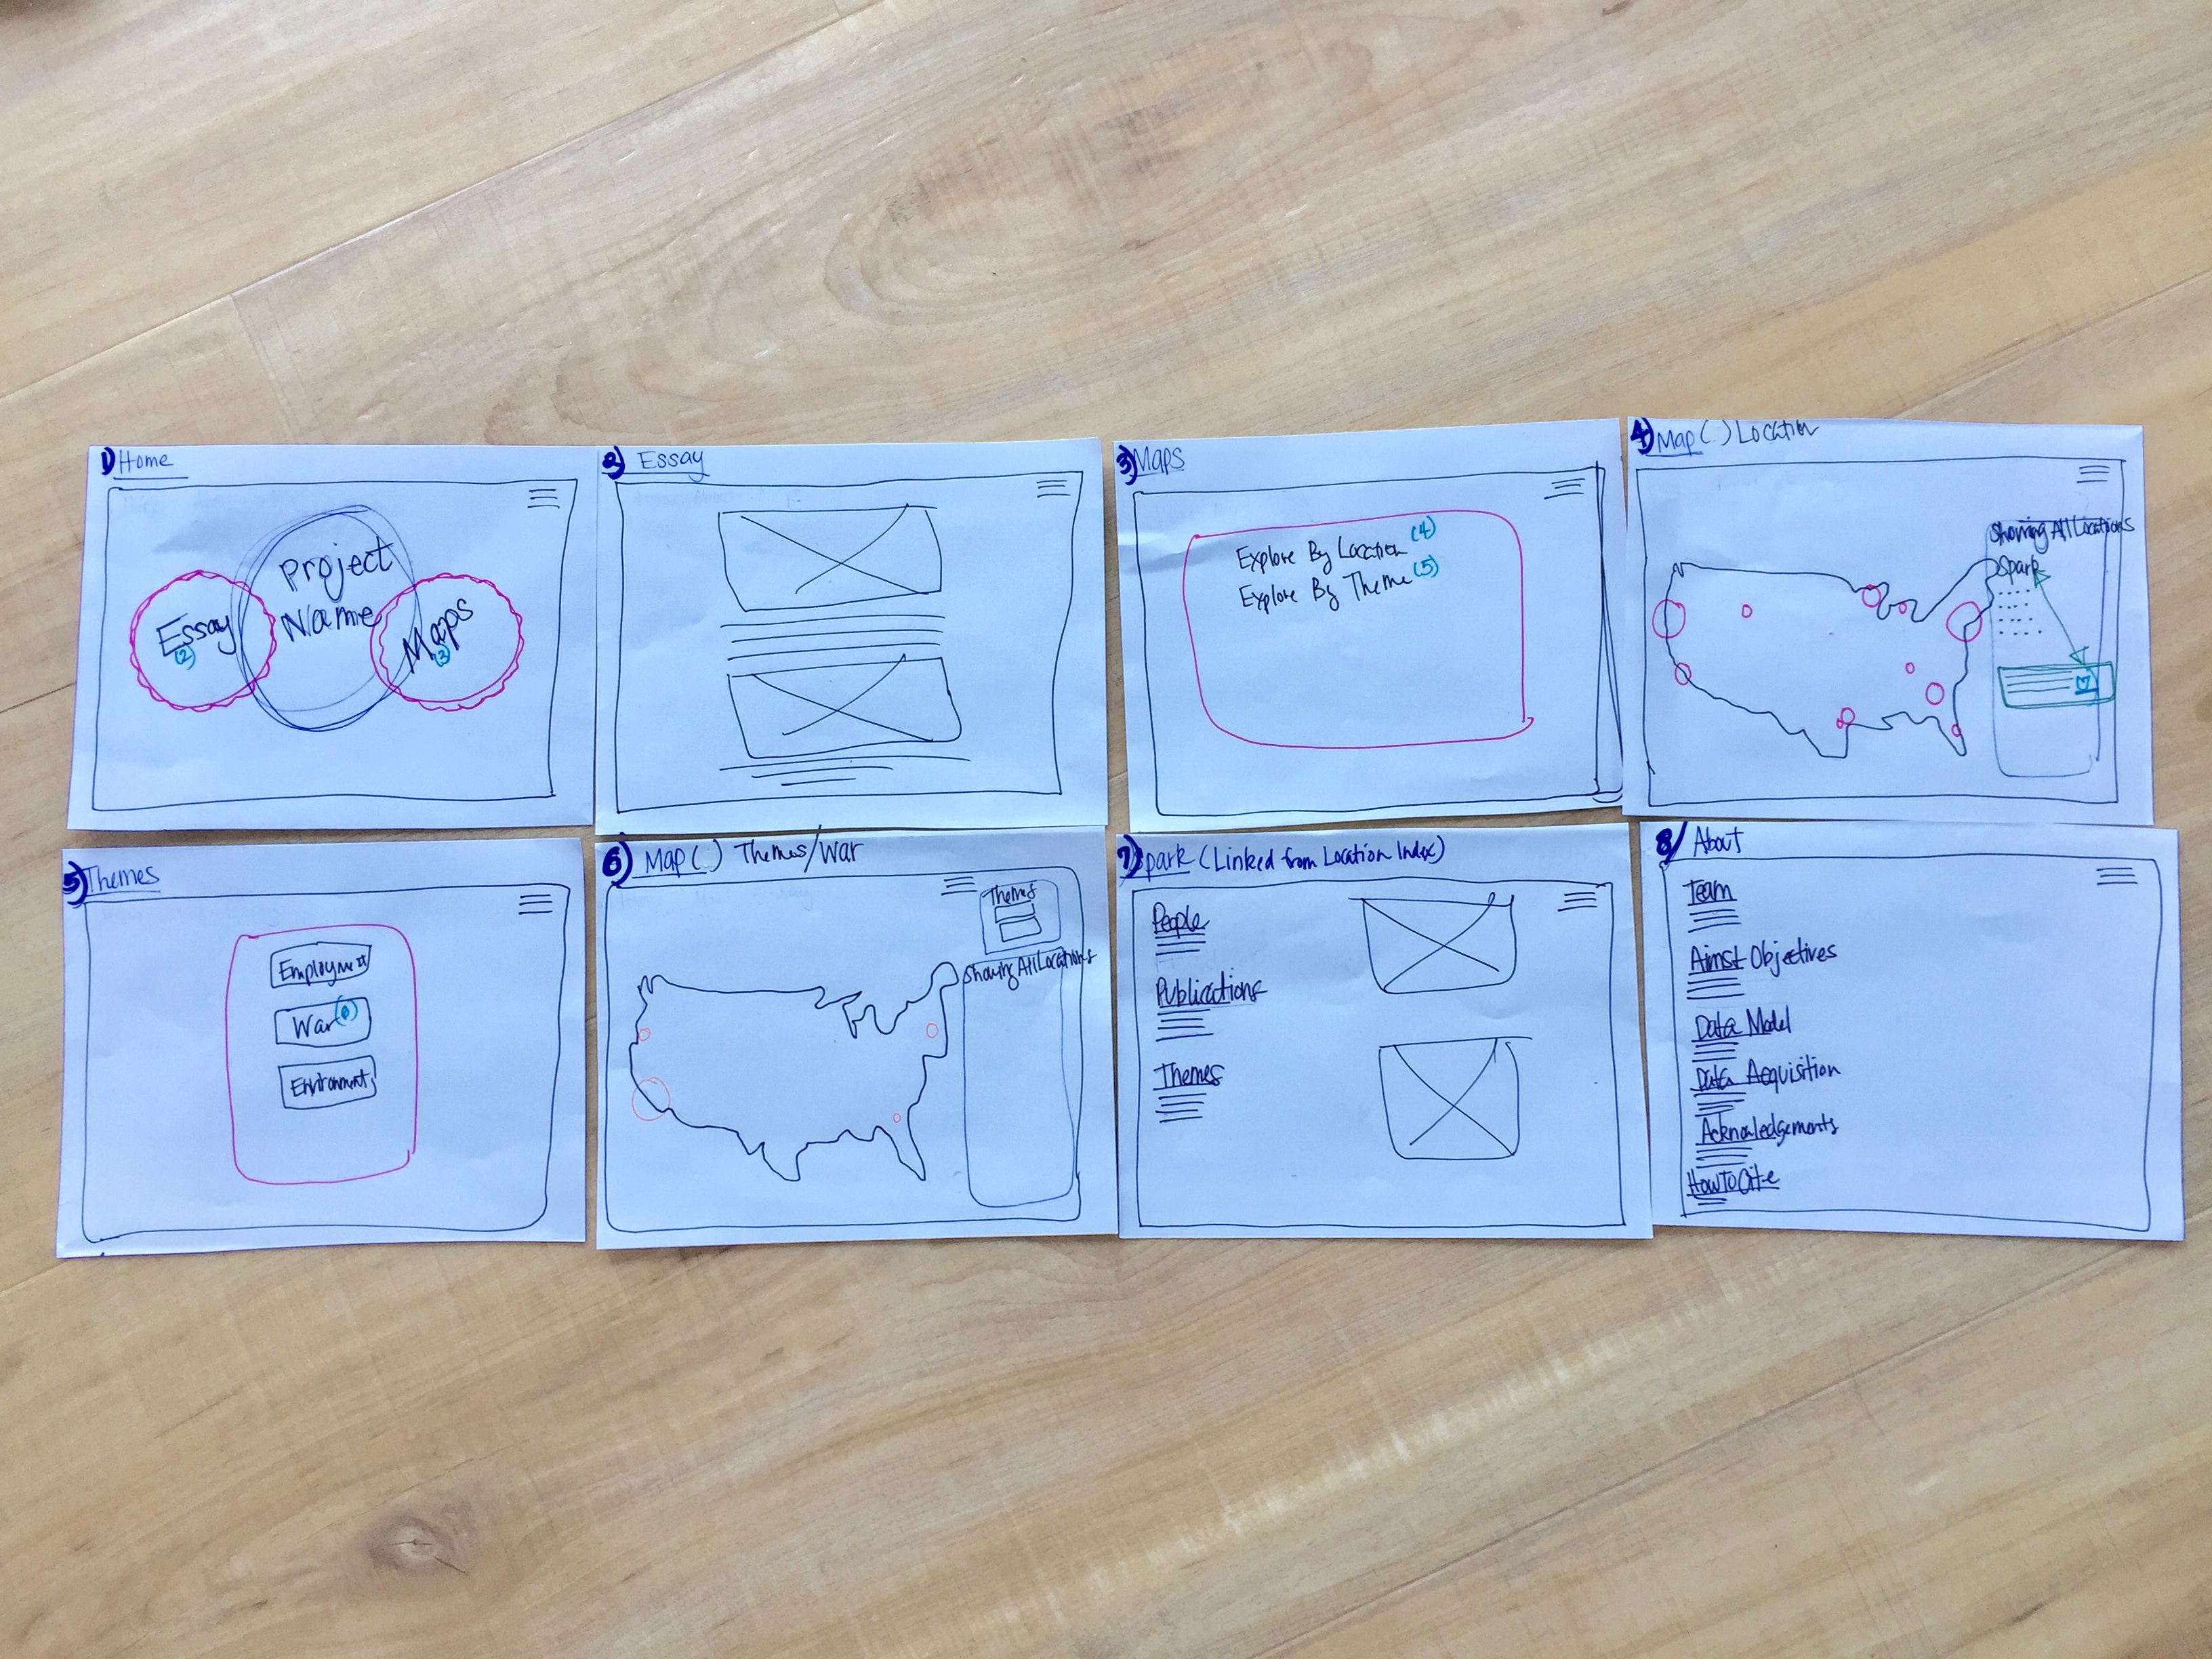 1) Home
Project
Name
Essay
(2)
Maps
(3)
2) Essay
3) Maps
Explore By Location (4)
Explore By Theme (5)
4) Map (.) Location
Showing All Locations
Spark
7
5) Themes
Employment
War (6)
Environment
6) Map (.) Themes/War
Themes
Showing All Locations
7) Spark (Linked from Location Index)
People
Publications
Themes
8) About
Team
Aims + Objectives
Data Model
Data Acquisition
Acknowledgements
How To Cite